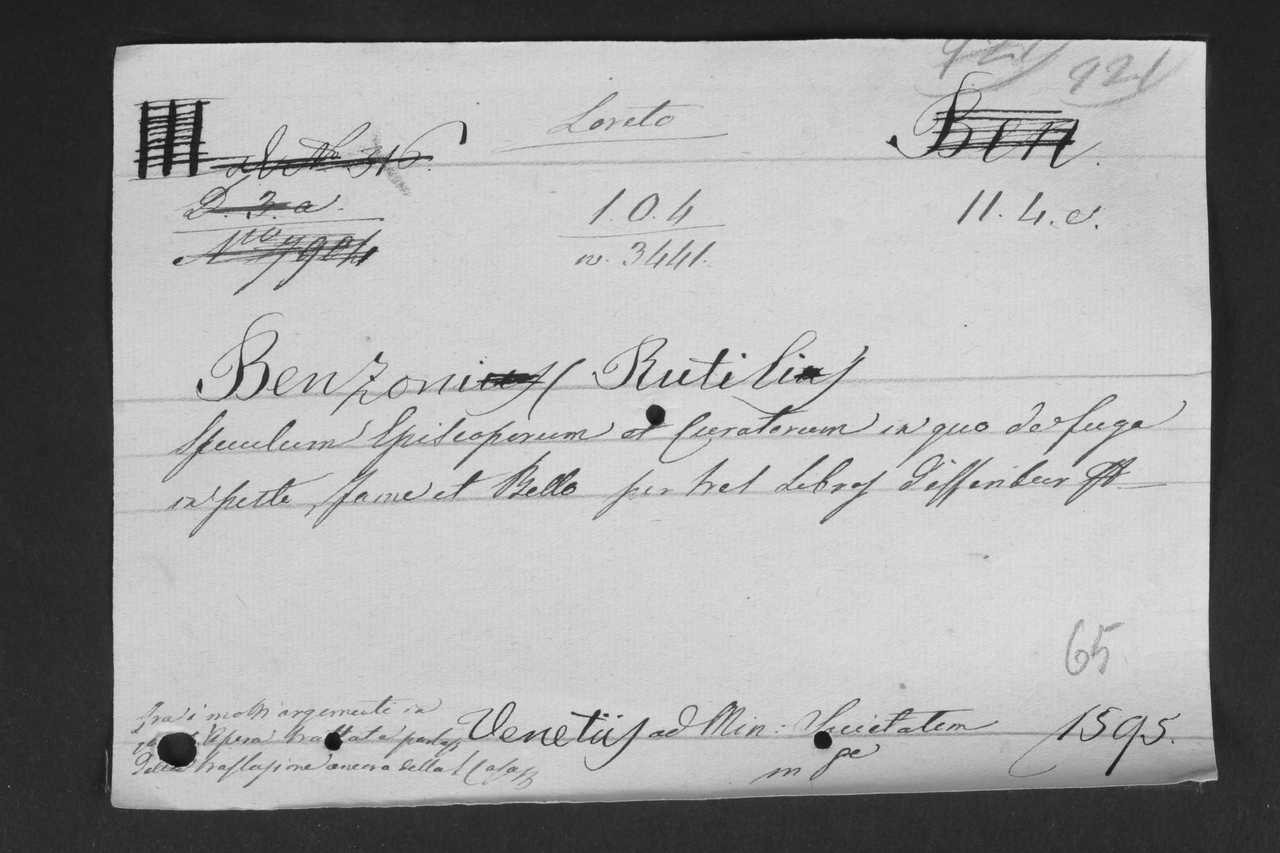 921 921
Loreto
Ben.
316
D. 3. a.
1. 0. 4
11. 4. c.
No 7904
n. 3441.
Benzoni Rutilij
Speculum Episcoporum et Curatorum in quo de fuga
in peste, fame et Bello per tres Libros disseritur
65
fra i molti argomenti in
Opera trattati parlasi
della traslazione ancora della S. Casa
Venetiis ad Min: Societatem 1595.
in go